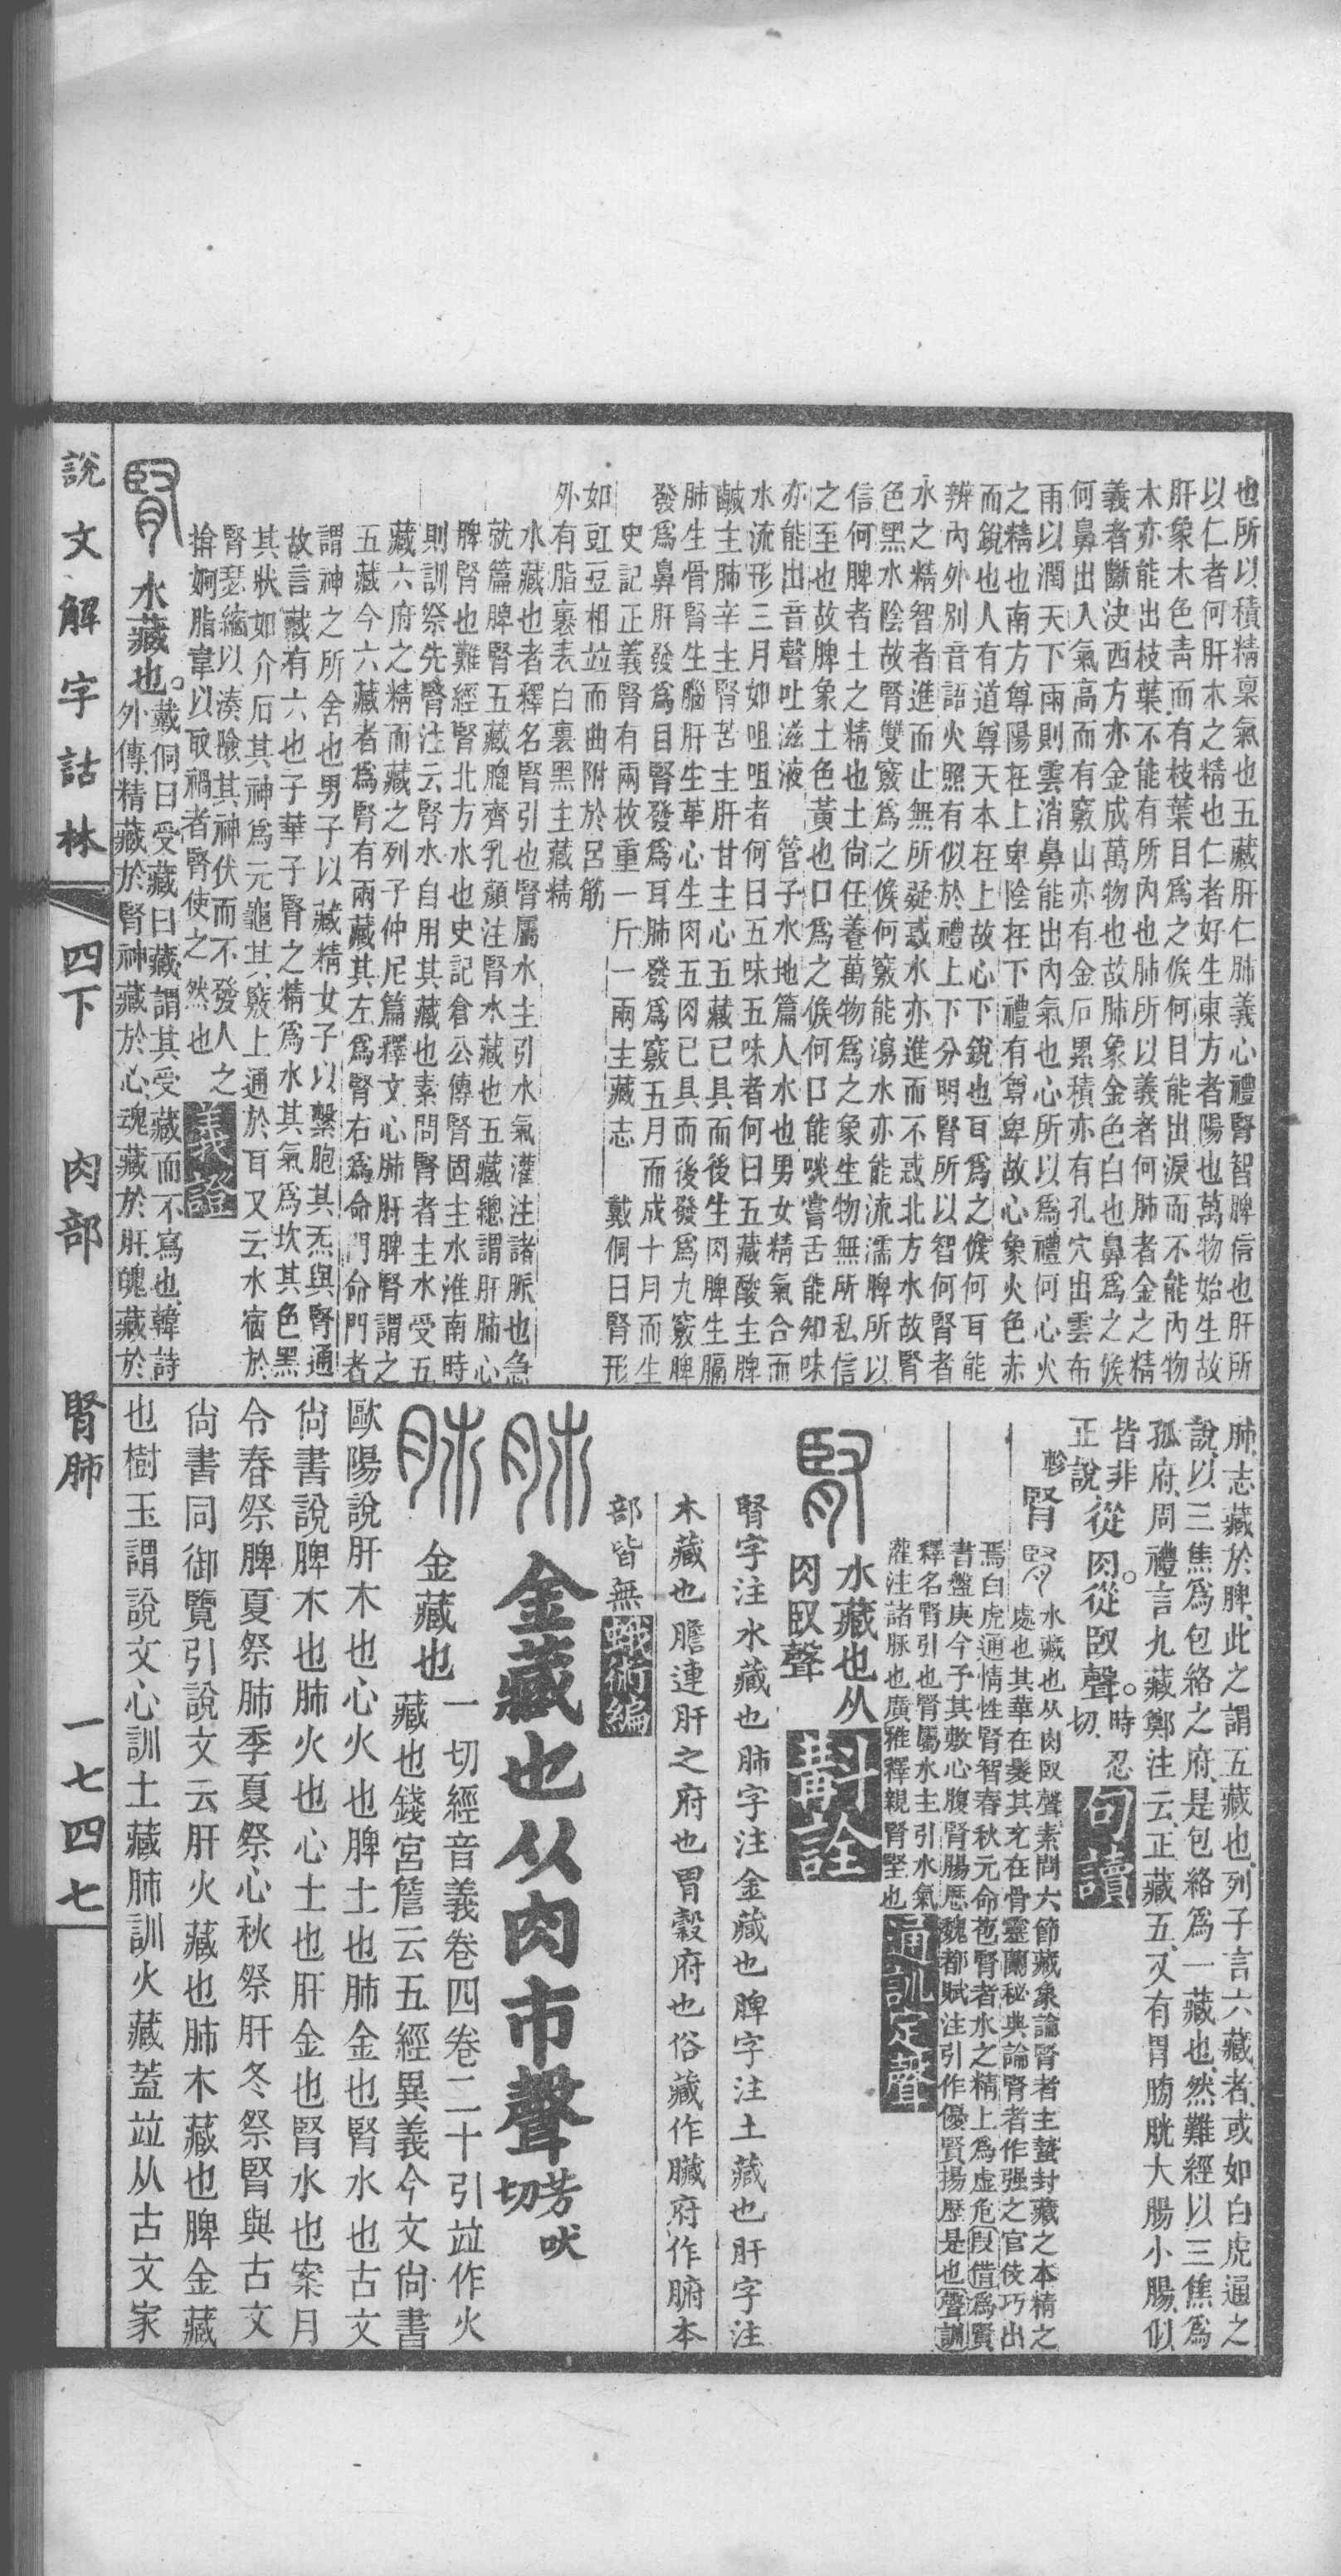 也所以積精禀氣也五藏肝仁肺義心禮腎智脾信也肝所
以仁者何肝木之精也仁者好生東方者陽也萬物始生故
肝象木色青而有枝葉目爲之候何目能出淚而不能內物
木亦能出枝葉不能有所內也肺所以義者何肺者金之精
義者斷決西方亦金成萬物也故肺象金色白也鼻爲之候
何鼻出入氣高而有竅山亦有金石累積亦有孔穴出雲布
雨以潤天下雨則雲消鼻能出內氣也心所以爲禮何心火
之精也南方尊陽在上卑陰在下禮有尊卑故心象火色赤
而銳也人有道尊天本在上故心下銳也耳爲之候何耳能
辨內外別音語火照有似於禮上下分明腎所以智何腎者
水之精智者進而止無所疑惑水亦進而不惑北方水故腎
色黑水陰故腎雙竅爲之候何竅能瀉水亦能流濡脾所以
信何脾者土之精也土尚任養萬物爲之象生物無所私信
之至也故脾象土色黃也口爲之候何口能啖嘗舌能知味
亦能出音聲吐滋液　管子水地篇人水也男女精氣合而
水流形三月如咀咀者何曰五味五味者何曰五藏酸主脾
鹹主肺辛主腎苦主肝甘主心五藏已具而後生肉脾生膈
肺生骨腎生腦肝生革心生肉五肉已具而後發爲九竅脾
發爲鼻肝發爲目腎發爲耳肺發爲竅五月而成十月而生
史記正義腎有兩枚重一斤一兩主藏志　戴侗曰腎形
如豇豆相竝而曲附於呂筋
外有脂裹表白裏黑主藏精
水藏也者釋名腎引也腎屬水主引水氣灌注諸脈也急
就篇脾腎五藏膍齊乳顏注腎水藏也五藏總謂肝肺心
脾腎也難經腎北方水也史記倉公傳腎固主水淮南時
則訓祭先腎注云腎水自用其藏也素問腎者主水受五
藏六府之精而藏之列子仲尼篇釋文心肺肝脾腎謂之
五藏今六藏者爲腎有兩藏其左爲腎右爲命門命門者
謂神之所舍也男子以藏精女子以繫胞其炁與腎通
故言藏有六也子華子腎之精爲水其氣爲坎其色黑
其狀如介石其神爲元龜其竅上通於耳又云水宿於
腎瑟縮以湊險其神伏而不發人之
揜婀脂韋以取禍者腎使之然也　義證
腎　水藏也。戴侗曰受藏曰藏謂其受藏而不寫也韓詩
外傳精藏於腎神藏於心魂藏於肝魄藏於
肺志藏於脾此之謂五藏也列子言六藏者或如白虎通之
說以三焦爲包絡之府是包絡爲一藏也然難經以三焦爲
孤府周禮言九藏鄭注云正藏五又有胃膀胱大腸小腸似
皆非
正說從肉。從臤聲。時忍切　句讀
軫　腎　腎　水藏也从肉臤聲素問六節藏象論腎者主蟄封藏之本精之
處也其華在髮其充在骨靈蘭秘典論腎者作强之官伎巧出
焉白虎通情性腎智春秋元命苞腎者水之精上爲虛危叚借爲賢
書盤庚今予其敷心腹腎腸厯魏都賦注引作優賢揚歷是也聲訓
釋名腎引也腎屬水主引水氣
灌注諸脈也廣雅釋親腎堅也　通訓定聲
腎　水藏也从
肉臤聲　斠詮
腎字注水藏也肺字注金藏也脾字注土藏也肝字注
木藏也膽連肝之府也胃穀府也俗藏作臟府作腑本
部皆無　蛾術編
肺　金藏也从肉巿聲芳吠切
肺　金藏也　一切經音義卷四卷二十引竝作火
藏也錢宮詹云五經異義今文尚書
歐陽說肝木也心火也脾土也肺金也腎水也古文
尚書說脾木也肺火也心土也肝金也腎水也案月
令春祭脾夏祭肺季夏祭心秋祭肝冬祭腎與古文
尚書同御覽引說文云肝火藏也肺木藏也脾金藏
也樹玉謂說文心訓土藏肺訓火藏蓋竝从古文家
說文解字詁林　四下　肉部　腎肺　一七四七